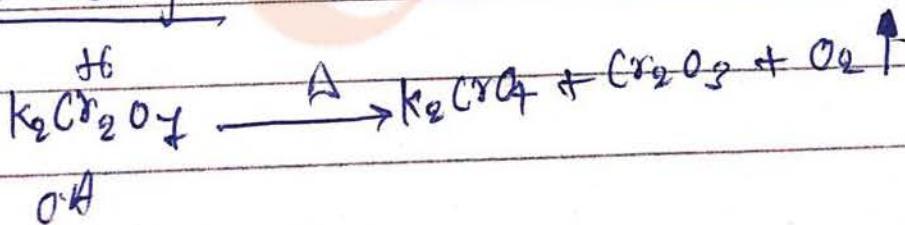 +6
K₂Cr₂O₇ —Δ→ K₂CrO₄ + Cr₂O₃ + O₂ ↑
O·A